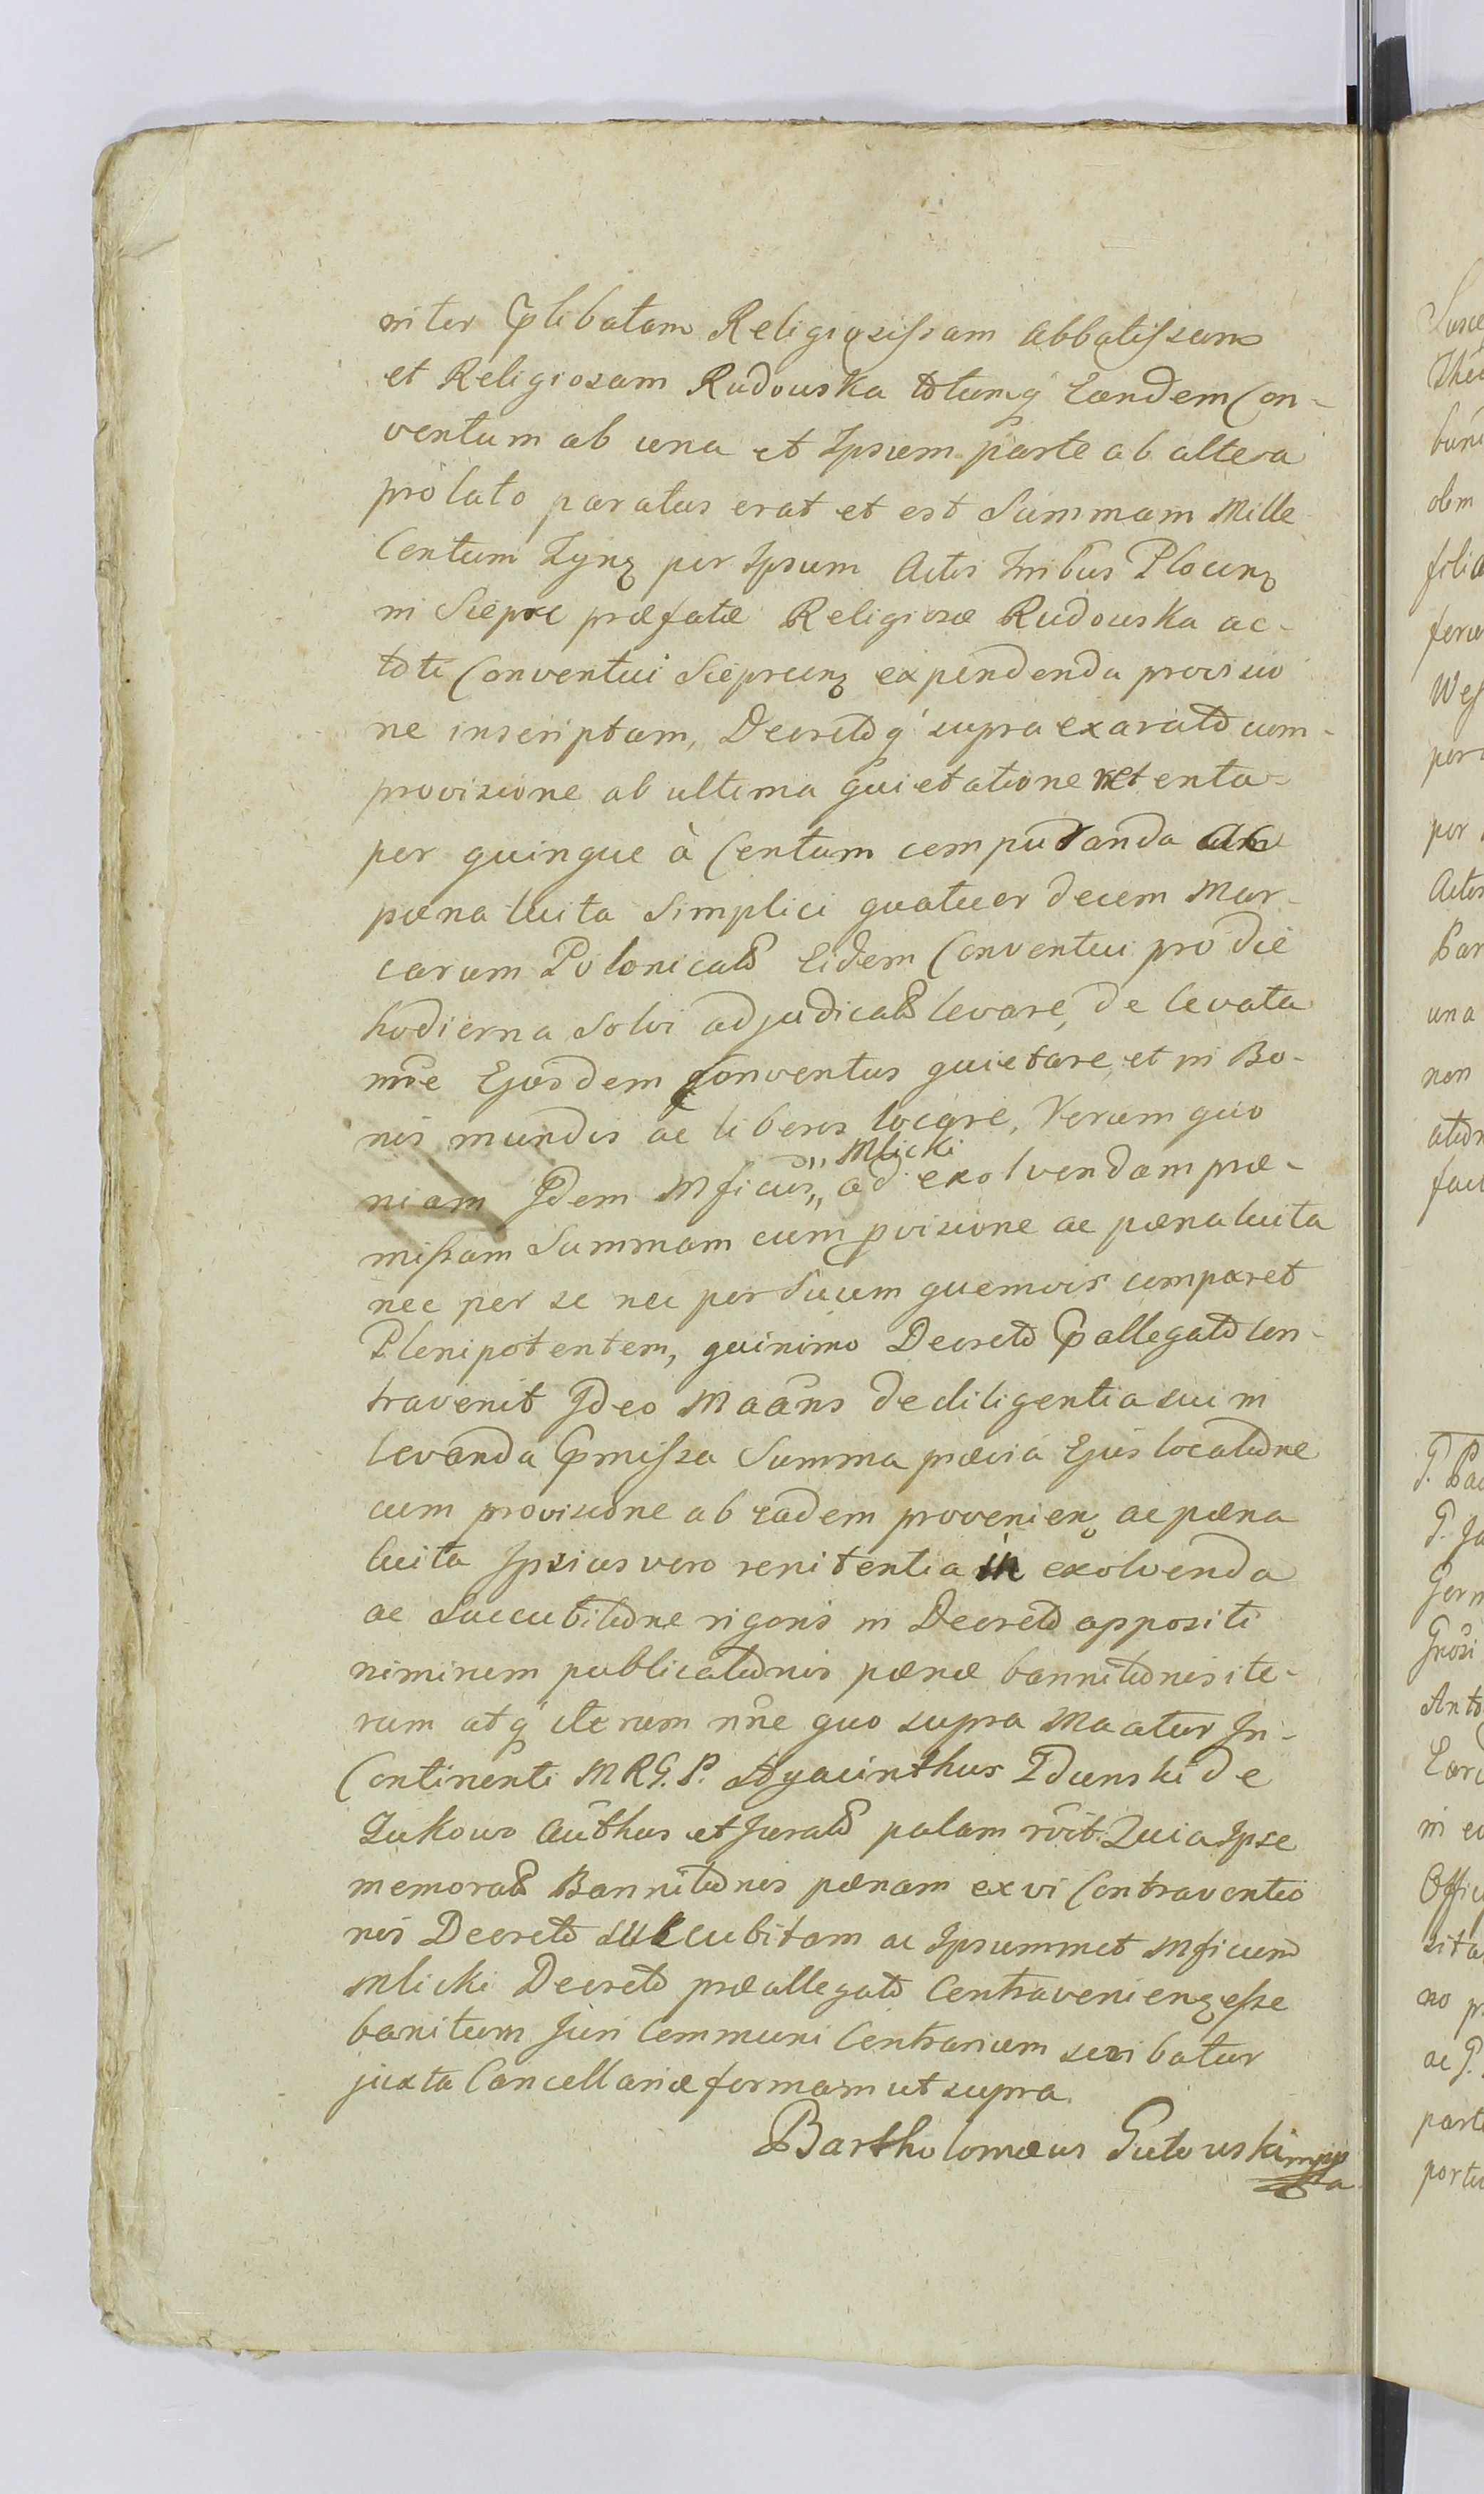 inter Plibatam Religiosissam Abbatissam
et Religiosam Rudowska totumq Eandem Con-
ventum ab una et Ipsum parte ab altera
prolato paratus erat et est Summam Mille
Centum Tynf per Ipsum Actis Tribus Plocen
in Sieprc præfatæ Religiosæ Rudowska ac
toti Conventui Sieprcen expendenda provisio
ne inscriptam, Decretoq supra exarato cum
provisione ab ultima quietatione retenta
per quinque à Centum computanda ac
pæna luita Simplici quatuor decem Mar-
carum Polonicalo Eidem Conventui pro die
hodierna Solvi adjudicato levare, de levata
nne Ejusdem Conventus quietare, et in Bo-
nis mundis ac liberis locare, Verum quo
niam Idem Mficus „Mlicki„ ad exolvendam præ-
missam Summam cum pvisione ac pæna luita
nec per se nec per Suum quemvis comparet
Plenipotentem, quinimo Decreto Pallegato Con-
travenit Ideo Maans de diligentia sui in
levanda Pmissa Summa prævia Ejus locatione
cum provisione ab eadem provenien ac pæna
luita Ipsius vero renitentia in exolvenda
ac Succubitione rigoris in Decreto appositi
niminem publicationis pænæ bannitionis ite-
rum atq iterum nne quo supra Maatur In-
Continenti MRG.P. Hyacinthus Zdunski de
Zukowo Authus et Jurato palam rvit. Quia Ipse
memorato Bannitionis pænam ex vi Contraventio
nis Decreto succubitam ac Ipsummet Mficum
Mlicki Decreto præallegato Contravenien esse
banitum Juri Communi Contrarium scribatur
juxta Cancellariæ formam ut supra.
Bartholomæus Gutowski mpp